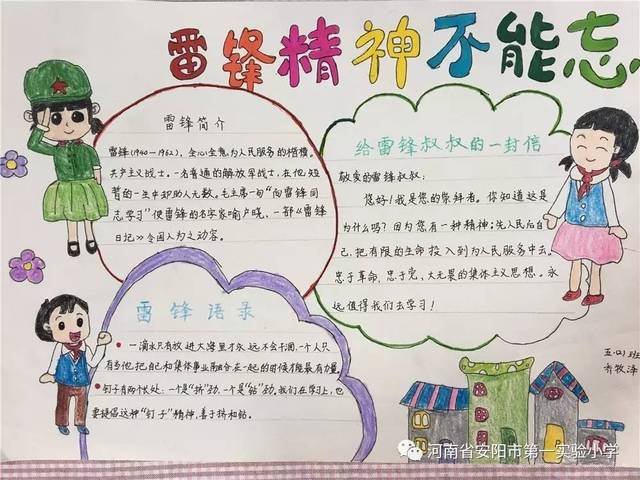 雷锋精神不能忘
雷锋简介
雷锋(1940—1962),全心全意为人民服务的楷模,
共产主义战士,一名普通的解放军战士,在他短
暂的一生中却助人无数。毛主席一句“向雷锋同
志学习”使雷锋的名字家喻户晓,一部《雷锋
日记》令国人为之动容。
给雷锋叔叔的一封信
敬爱的雷锋叔叔:
您好!我是您的崇拜者。你知道这是
为什么吗?因为您有一种精神:先人民后自
己,把有限的生命投入到为人民服务中去。
忠于革命,忠于党,大无畏的集体主义思想。永
远值得我们去学习!
雷锋语录
一滴水只有放进大海里才永远不会干涸,一个人只
有当他把自己和集体事业融合在一起的时候才能最有力量。
钉子有两个长处:一个是“挤”劲,一个是“钻”劲。我们在学习上,也
要提倡这种“钉子”精神,善于挤和钻。
河南省安阳市第一实验小学